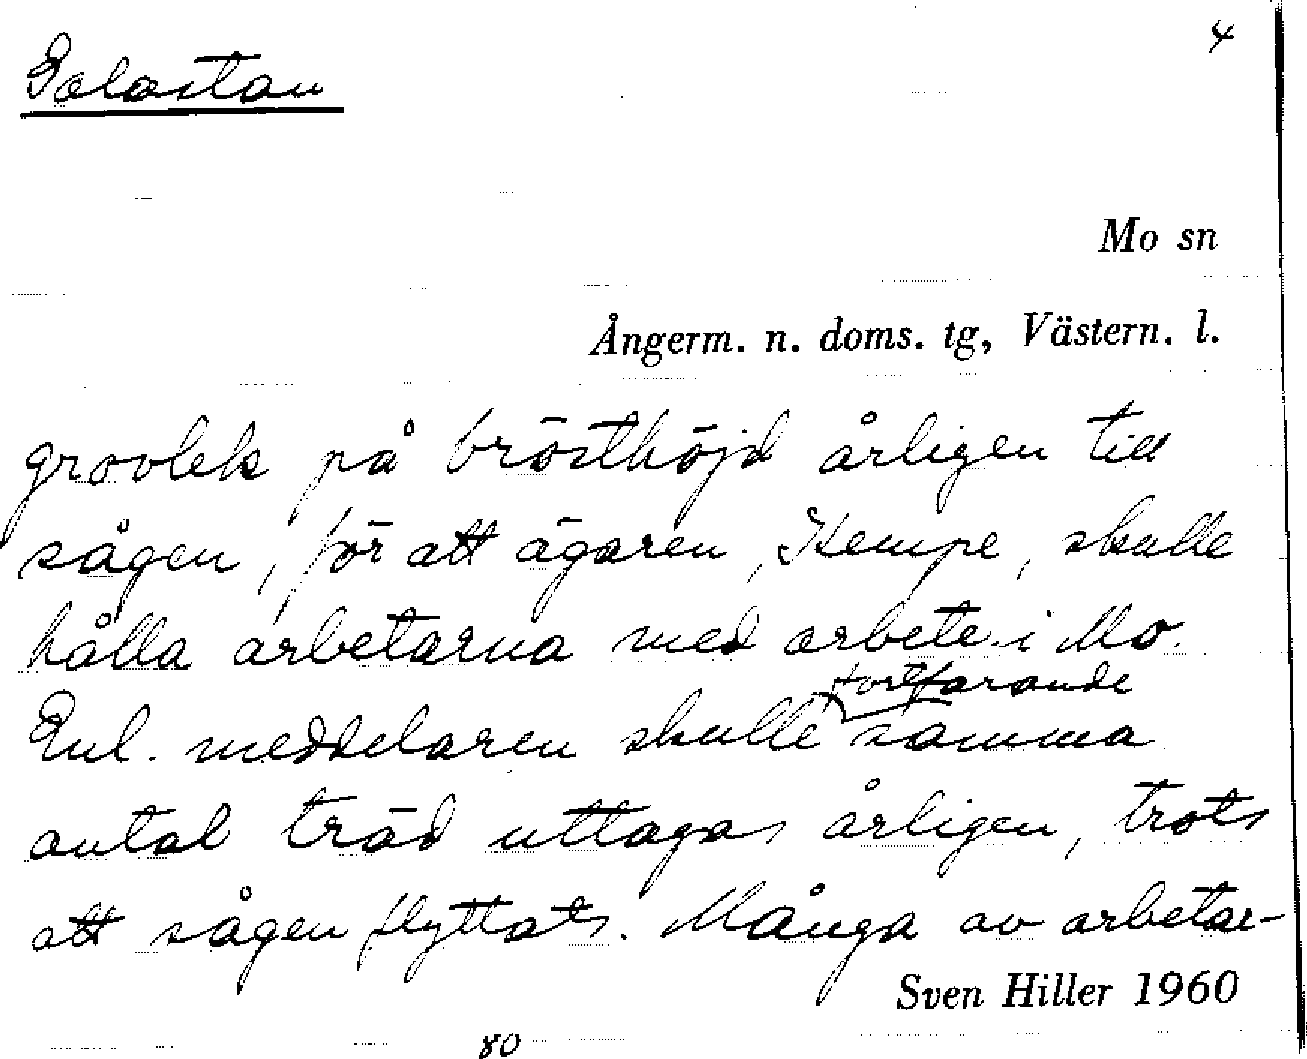 4
Mo sn
Ångerm. n. doms. tg, Västern. l.
grovlek på brösthöjd årligen till
sågen, för att ägaren, Kempe, skulle
hålla arbetarna med arbete i Mo.
fortfarande
Enl. meddelaren skulle samma
antal träd uttagas årligen, trots
att sågen flyttats. Många av arbetar-
Sven Hiller 1960
80